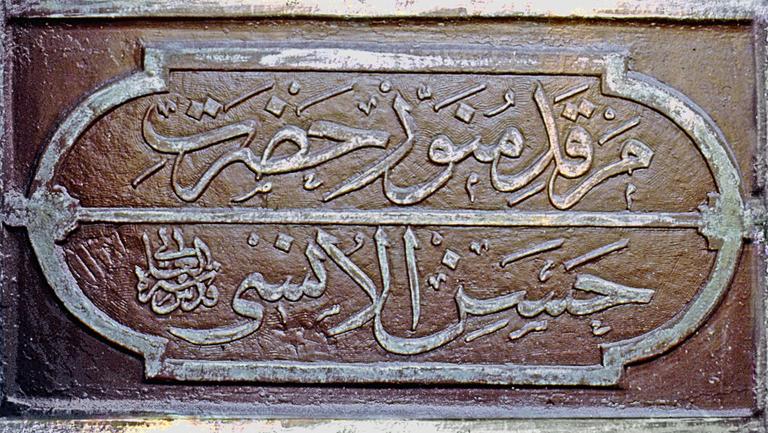 مرقد منور حضرت
حسن الانسی قدس سره العالی